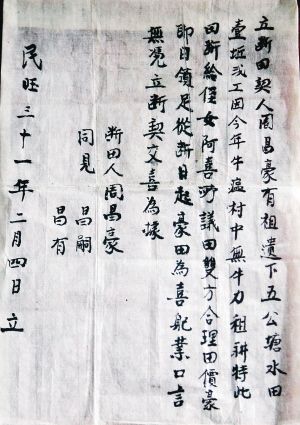 立斷田契人周昌豪有祖遺下五公塘水田
壹坵弍工因今年牛瘟村中無牛力租耕特此
田斷給侄女阿喜所議田雙方合理田價豪
即日領足從斷日起豪田為喜耽業口言
無凭立斷契交喜為據
斷田人周昌豪
同見 昌嗣
昌有
民國三十一年二月四日立